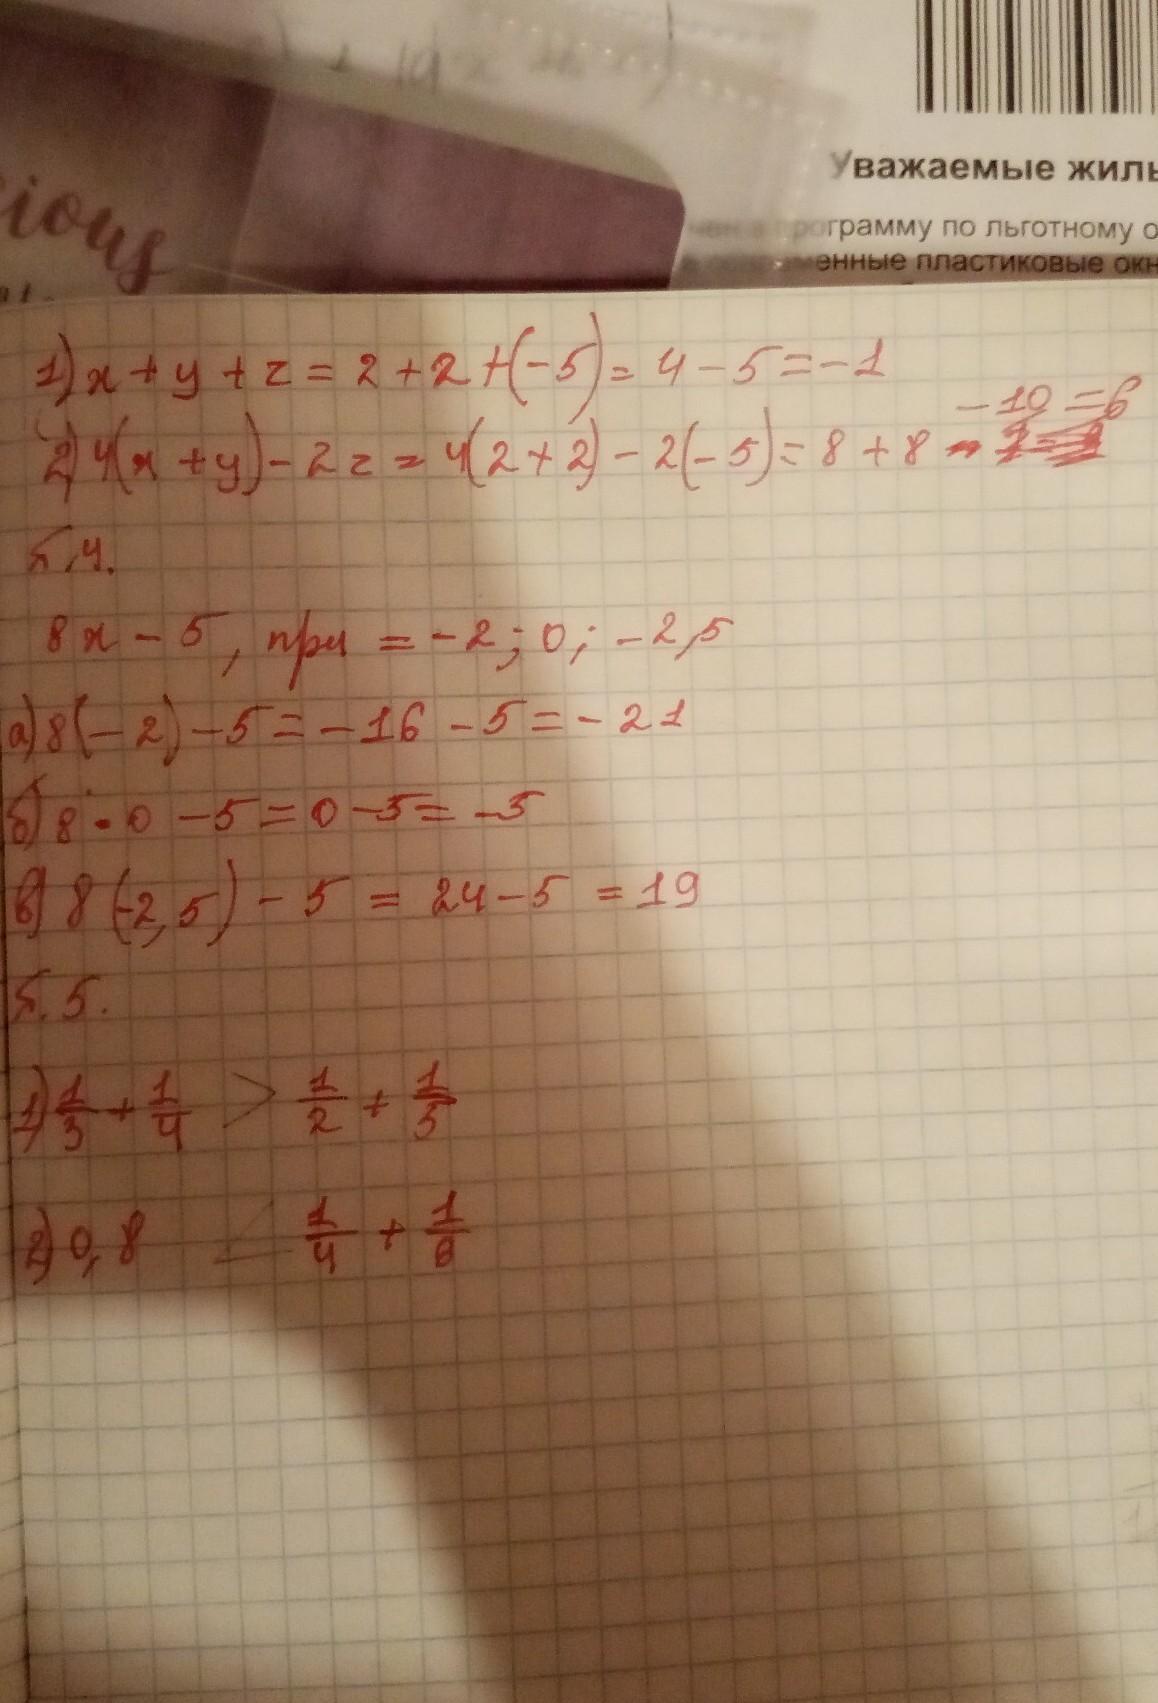 Уважаемые жиль
программу по льготному о
енные пластиковые окн
1) x + y + z = 2 + 2 + (-5) = 4 - 5 = -1
- 10 = 6
2) 4(x + y) - 2z = 4(2 + 2) - 2(-5) = 8 + 8
П.4.
8x - 5, при = -2; 0; -2,5
а) 8(-2) - 5 = -16 - 5 = -21
б) 8 · 0 - 5 = 0 - 5 = -5
в) 8(-2,5) - 5 = 24 - 5 = 19
П.5.
1) 1/3 + 1/4 > 1/2 + 1/5
2) 0,8 < 1/4 + 1/8